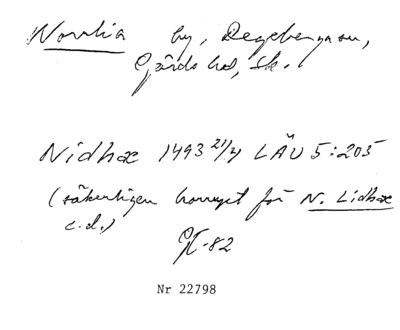 Norrlia by, Degeberga sn,
Gärds hd, Sk.
Nidhæ 1493 21/4 LÄU 5:205
(säkerligen korrupt för N. Lidhæ
c.d.)
GH-82
Nr 22798